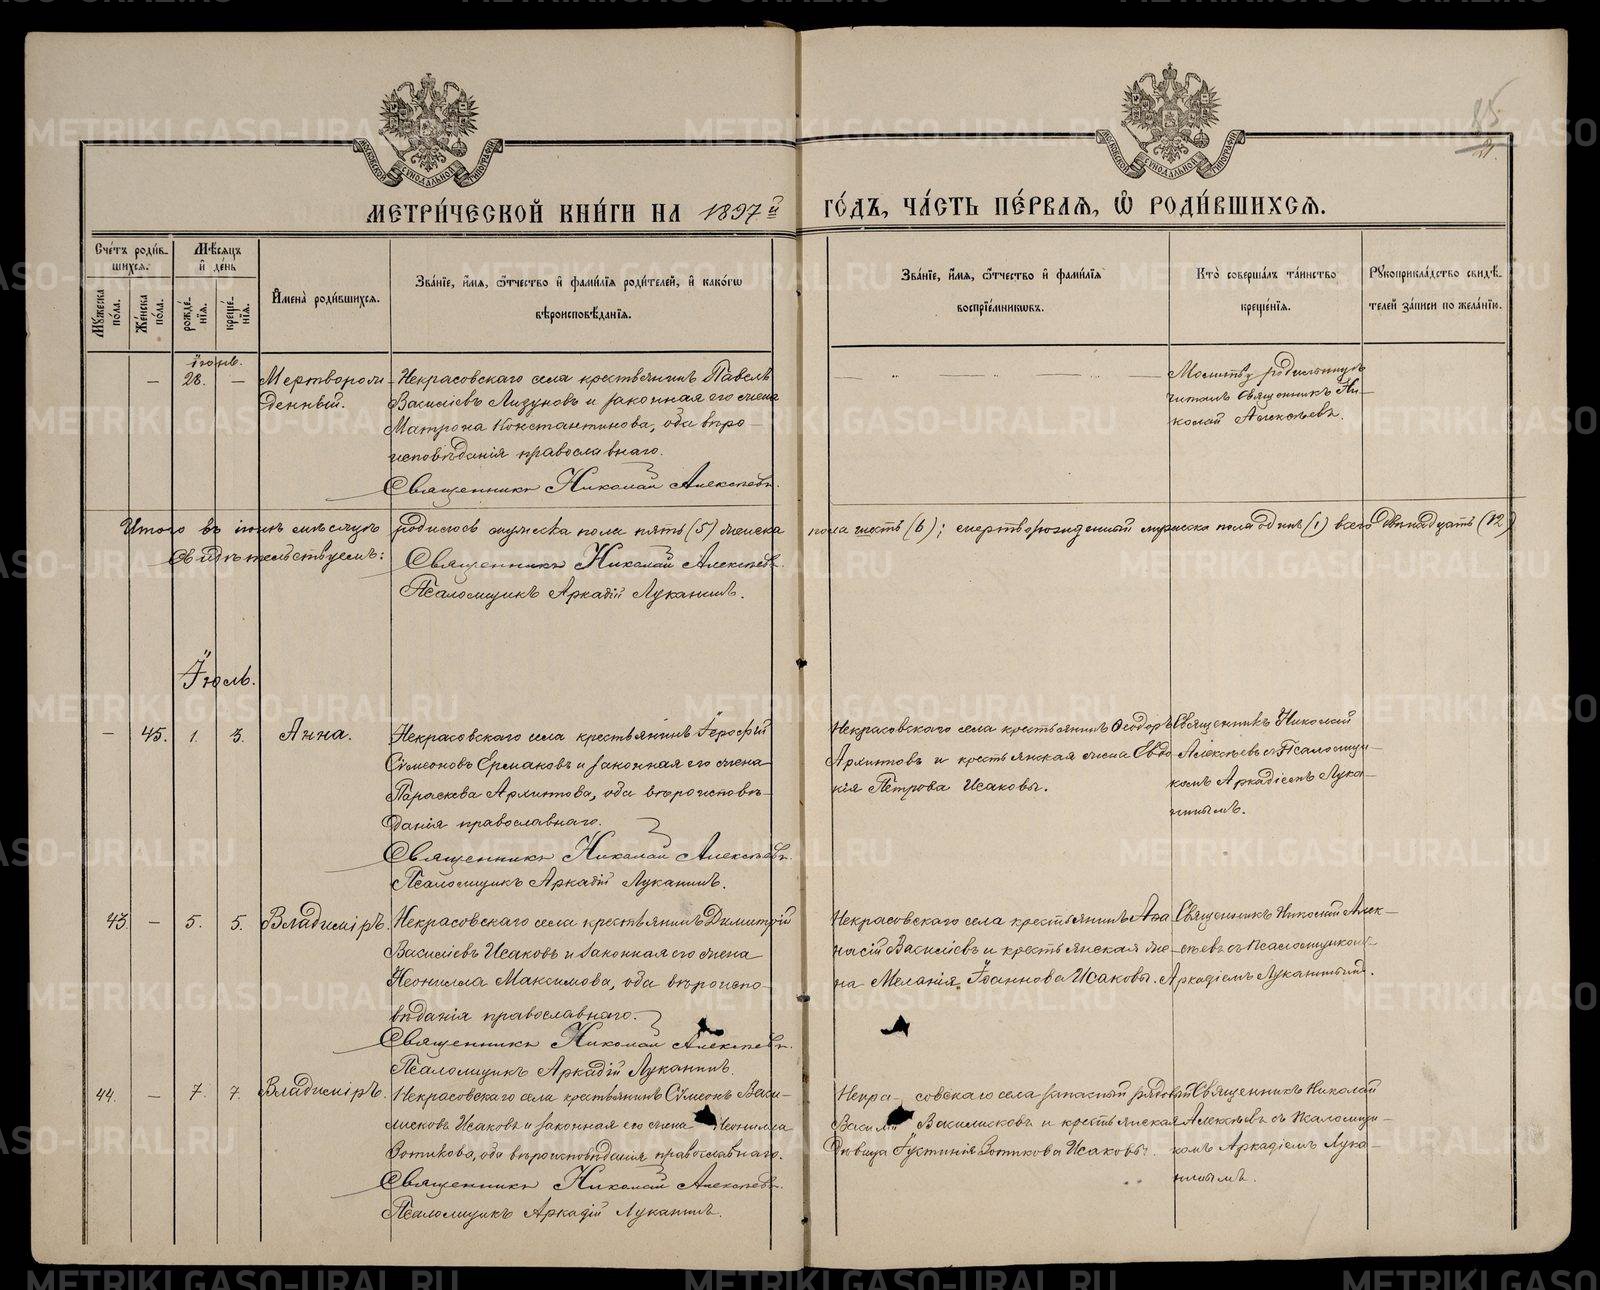 85
21.
МЕТРИ́ЧЕСКОЙ КНИ́ГИ НА 1897й ГО́ДЪ, ЧА́СТЬ ПЕ́РВАѦ, Ѽ РОДИ́ВШИХСѦ.
Сче́тъ роди́вшихсѧ.
Мꙋжеска по́ла.
Же́нска по́ла.
Мѣ́сѧцъ и҆ де́нь
рожде́нїѧ.
креще́нїѧ.
И҆мена̀ роди́вшихсѧ.
Зва́нїе, и҆́мѧ, ѻ҆́тчество и҆ фами́лїѧ роди́телей, и҆ како́гѡ
вѣроисповѣ́данїѧ.
Зва́нїе, и҆́мѧ, ѻ҆́тчество и҆ фами́лїѧ
воспрїе́мникѡвъ.
Кто̀ соверша́лъ та́инство
креще́нїѧ.
Рꙋкоприкла́дство свидѣ́телей за́писи по жела́нїю.
Іюнь.
— 28. — Мертворожденный.
Некрасовскаго села крестьянинъ Павелъ
Василіевъ Лизуновъ и законная его жена
Матрона Константинова, оба вѣро-
исповѣданія православнаго.
Священникъ Николай Алексѣевъ.
Молитву родильницѣ
читалъ священникъ Ни-
колай Алексѣевъ.
Итого въ іюнѣ мѣсяцѣ родилось мужеска пола пять (5) женска пола шесть (6); мертворожденный мужеска пола одинъ (1) всего двѣнадцать (12)
Свидѣтельствуемъ: Священникъ Николай Алексѣевъ.
Псаломщикъ Аркадій Луканинъ.
Іюль.
— 45. 1. 3. Анна.
Некрасовскаго села крестьянинъ Іерофей
Сѵмеоновъ Ермаковъ и законная его жена
Параскева Архипова, оба вѣроисповѣ-
данія православнаго.
Священникъ Николай Алексѣевъ.
Псаломщикъ Аркадій Луканинъ.
Некрасовскаго села крестьянинъ Ѳеодоръ
Архиповъ и крестьянская жена Евдо
кія Петрова Исаковы.
Священникъ Николай
Алексѣевъ съ Псаломщи-
комъ Аркадіемъ Лука-
нинымъ.
43. — 5. 5. Владиміръ.
Некрасовскаго села крестьянинъ Димитрій
Василіевъ Исаковъ и законная его жена
Неонилла Максимова, оба вѣроиспо-
вѣданія православнаго.
Священникъ Николай Алексѣевъ.
Псаломщикъ Аркадій Луканинъ.
Некрасовскаго села крестьянинъ Аѳа
насій Василіевъ и крестьянская же-
на Меланія Іоаннова Исаковы.
Священникъ Николай Алек-
сѣевъ съ Псаломщикомъ
Аркадіемъ Луканинымъ.
44. — 7. 7. Владиміръ.
Некрасовскаго села крестьянинъ Сѵмеонъ Васи-
лисковъ Исаковъ и законная его жена Неонилла
Зотикова, оба вѣроисповѣданія православнаго.
Священникъ Николай Алексѣевъ.
Псаломщикъ Аркадій Луканинъ.
Некрасовскаго села запасный рядовой
Василій Василисковъ и крестьянская
дѣвица Іустинія Зотикова Исаковы.
Священникъ Николай
Алексѣевъ съ Псаломщи-
комъ Аркадіемъ Лука-
нинымъ.
METRIKI.GASO-URAL.RU